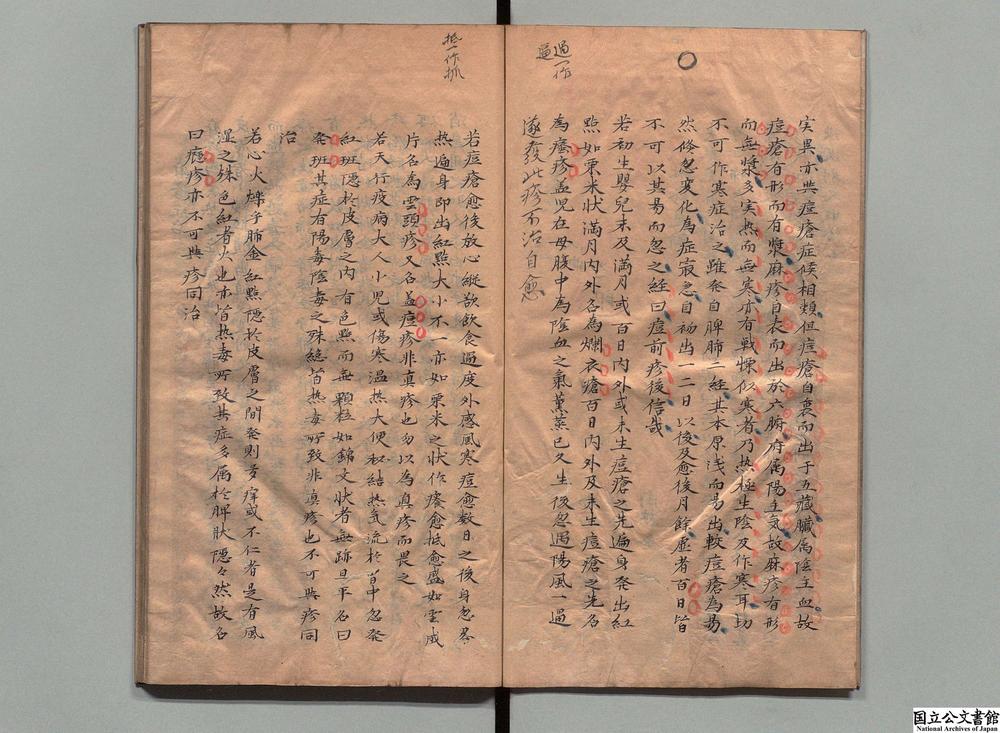 過一作
逼
実異亦与痘瘡症候相類但痘瘡自裏而出于五藏臓属陰主血故
痘瘡有形而有漿麻疹自表而出於六腑府属陽主気故麻疹有形
而無漿多実熱而無寒亦有戦慄似寒者乃熱極生陰及作寒耳切
不可作寒症治之雖発自脾肺二経其本原浅而易出較痘瘡為易
然倏忽変化為症最急自初出一二日以後及愈後月餘虚者百日皆
不可以其易而忽之経曰痘前疹後信哉
若初生嬰兒未及満月或百日内外或未生痘瘡之先遍身発出紅
點如粟米状満月内外名為爛衣瘡百日内外及未生痘瘡之先名
為瘙疹盖児在母腹中為陰血之氣薫蒸已久生後忽遇陽風一過
遂發此疹不治自愈
抵一作抓
若痘瘡愈後放心縦欲飲食過度外感風寒痘愈数日之後身忽暴
热遍身即出紅點大小不一亦如粟米之状作癢愈抵愈盛如雲成
片名為雲頭疹又名盖痘疹非真疹也勿以為真疹而畏之
若天行疫病大人小児或傷寒温热大便秘結热気流於胃中忽発
紅班隠於皮膚之内有色點而無顆粒如錦文状者無跡且平名曰
発班其症有陽毒陰毒之殊總皆热毒所致非真疹也不可與疹同
治
若心火爍乎肺金紅點隠於皮膚之間発則多痒或不仁者是有風
湿之殊色紅者火也亦皆热毒所致其症多属於脾肽隠々然故名
曰癮疹亦不可與疹同治
国立公文書館
National Archives of Japan